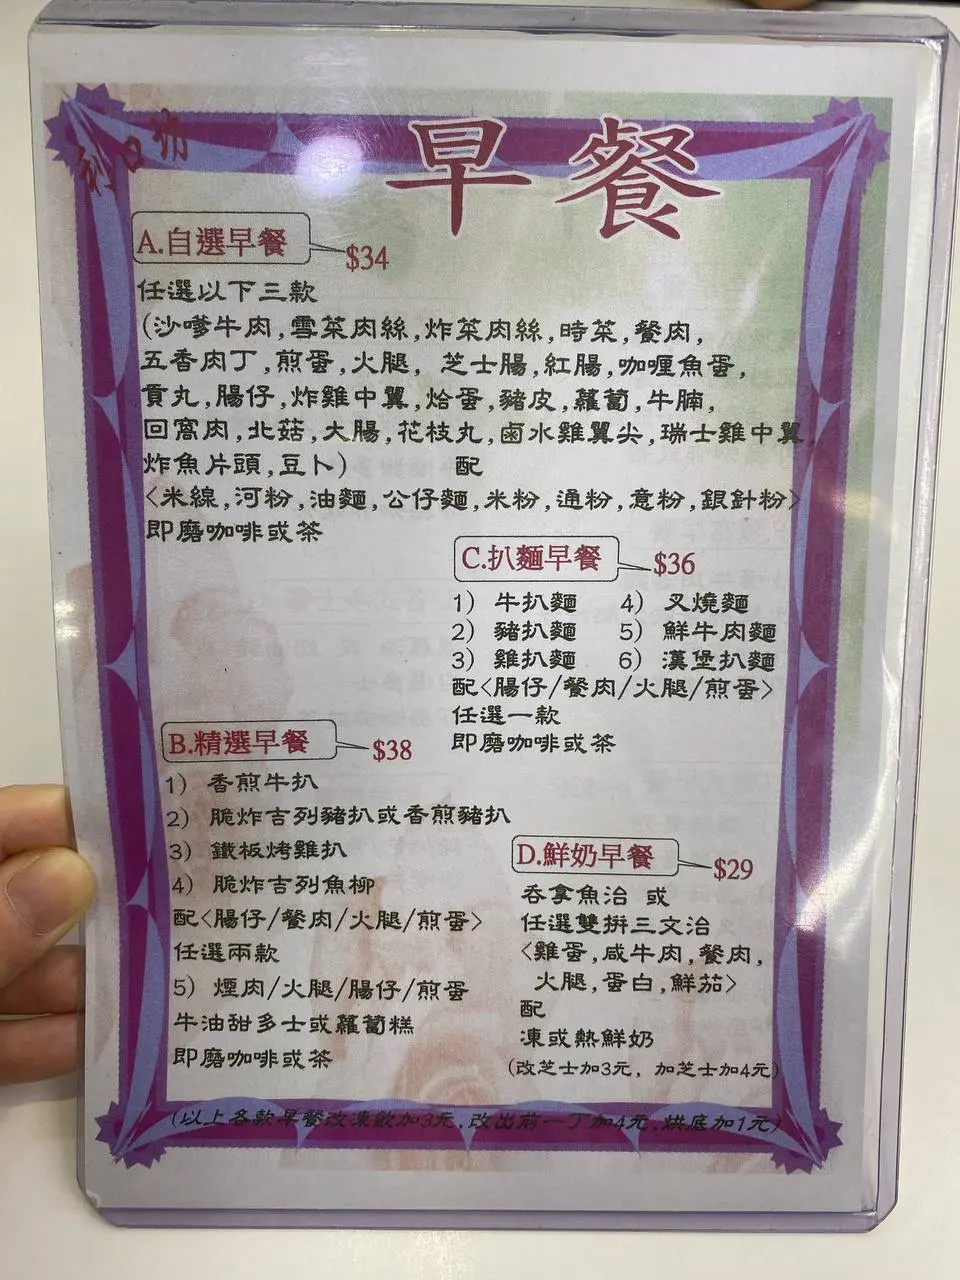 利口坊
早餐
A.自選早餐 $34
任選以下三款
(沙嗲牛肉,雪菜肉絲,炸菜肉絲,時菜,餐肉,
五香肉丁,煎蛋,火腿,芝士腸,紅腸,咖喱魚蛋,
貢丸,腸仔,炸雞中翼,烚蛋,豬皮,蘿蔔,牛腩,
回窩肉,北菇,大腸,花枝丸,鹵水雞翼尖,瑞士雞中翼,
炸魚片頭,豆卜) 配
<米線,河粉,油麵,公仔麵,米粉,通粉,意粉,銀針粉>
即磨咖啡或茶
C.扒麵早餐 $36
1) 牛扒麵 4) 叉燒麵
2) 豬扒麵 5) 鮮牛肉麵
3) 雞扒麵 6) 漢堡扒麵
配<腸仔/餐肉/火腿/煎蛋>
任選一款
即磨咖啡或茶
B.精選早餐 $38
1) 香煎牛扒
2) 脆炸吉列豬扒或香煎豬扒
3) 鐵板烤雞扒
4) 脆炸吉列魚柳
配<腸仔/餐肉/火腿/煎蛋>
任選兩款
5) 煙肉/火腿/腸仔/煎蛋
牛油甜多士或蘿蔔糕
即磨咖啡或茶
D.鮮奶早餐 $29
吞拿魚治 或
任選雙拼三文治
<雞蛋,咸牛肉,餐肉,
火腿,蛋白,鮮茄>
配
凍或熱鮮奶
(改芝士加3元, 加芝士加4元)
(以上各款早餐改凍飲加3元,改出前一丁加4元,烘底加1元)